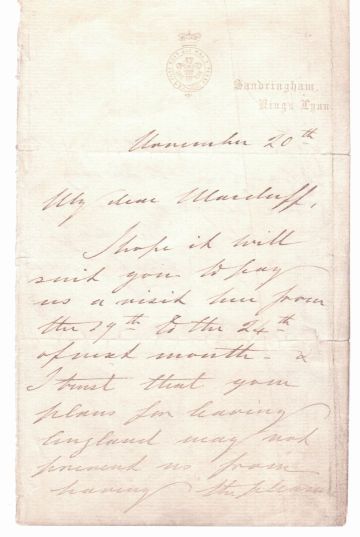 Sandringham,
Kings Lynn.
November 20th
My dear Macduff,
I hope it will
suit you to pay
us a visit here from
the 19th to the 24th
of next month - &
I trust that your
plans for leaving
England may not
prevent us from
having the pleasure